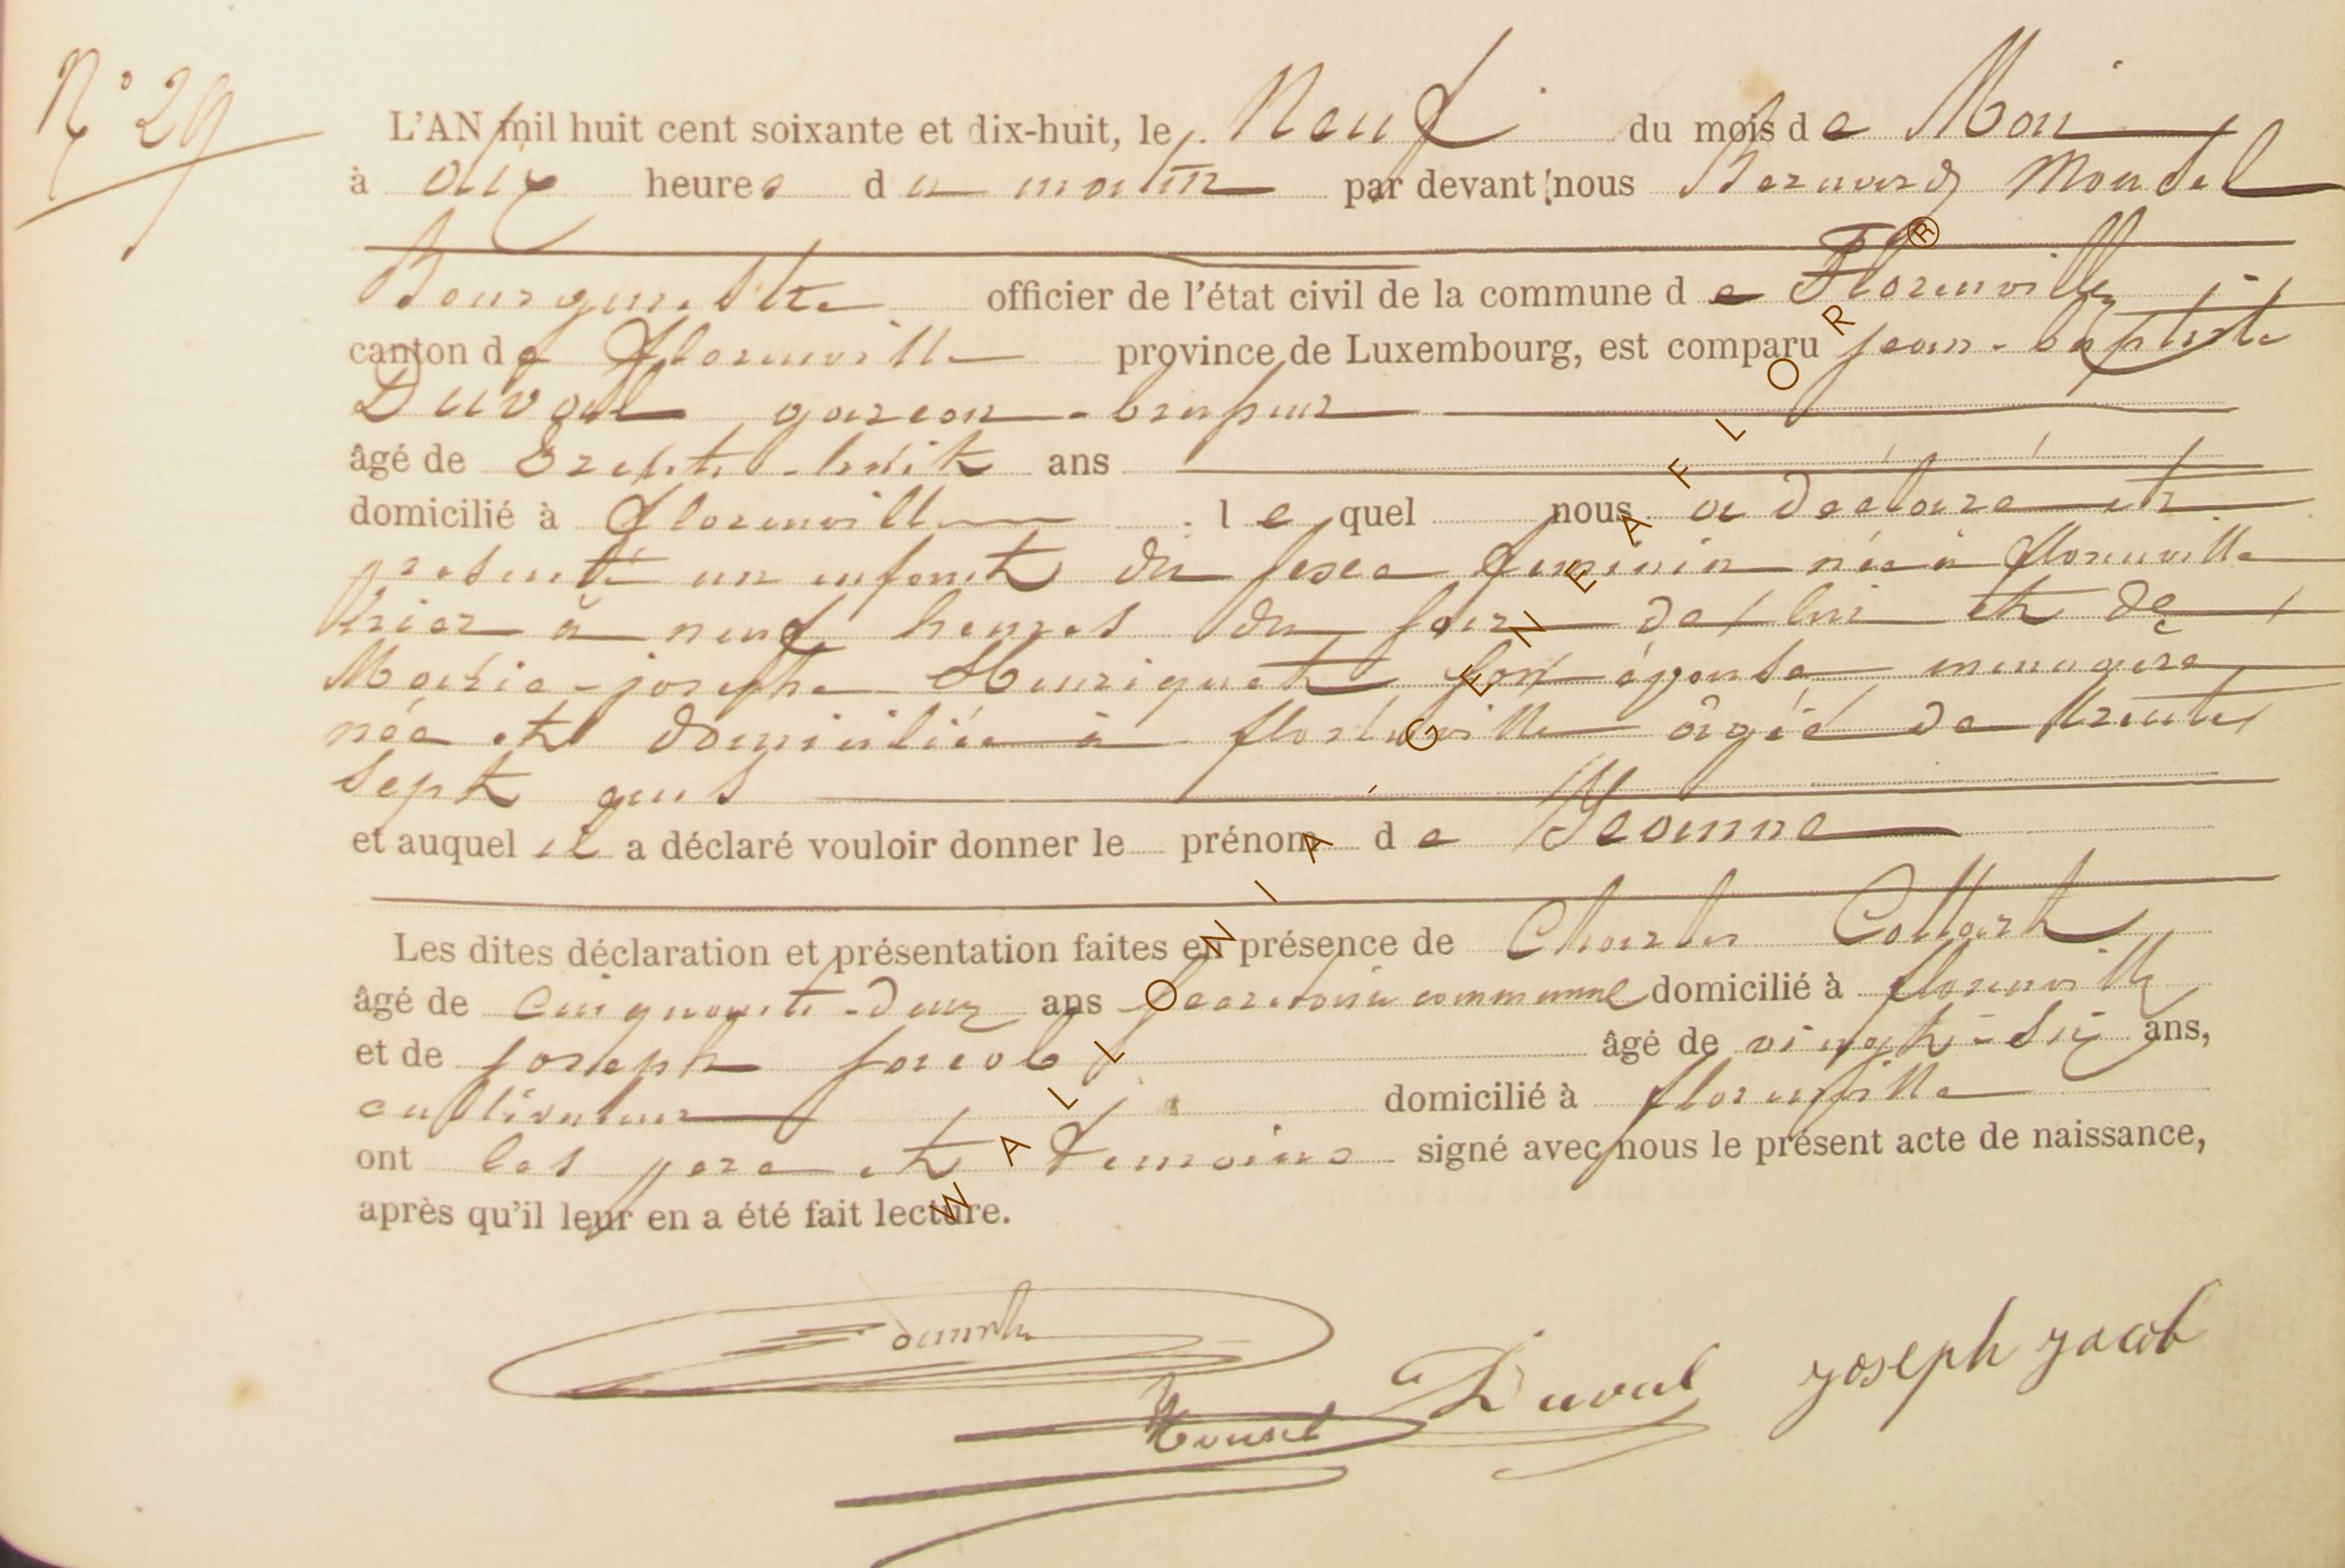 N° 29
L'AN mil huit cent soixante et dix-huit, le Neuf du mois de Mai
à dix heures du matin par devant nous Bernard Monsel
Bourgmestre officier de l'état civil de la commune de Florenville
canton de Florenville province de Luxembourg, est comparu jean-baptiste
Duval garçon-brasseur
âgé de trente-huit ans
domicilié à florenville lequel nous a déclaré et
présenté un enfant du sexe féminin née à florenville
hier à neuf heures du soir de lui et de
Marie-josephe Henriquet son épouse ménagère
née et domiciliée à florenville âgée de trente
sept ans
et auquel il a déclaré vouloir donner le prénom de Jeanne
Les dites déclaration et présentation faites en présence de Charles Collart
âgé de cinquante-deux ans secrétaire communal domicilié à florenville
et de joseph jacob âgé de vingt-six ans,
cultivateur domicilié à florenville
ont les père et témoins signé avec nous le présent acte de naissance,
après qu'il leur en a été fait lecture.
Duval joseph jacob
Monsel
WALLONIA GENEAFLOR ®